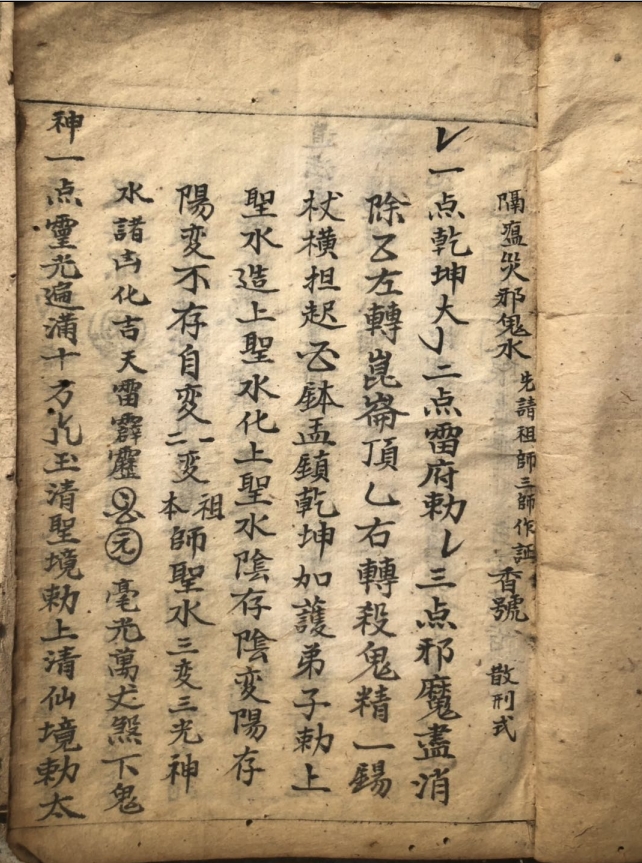 隔瘟災邪鬼水 先請祖師三師作証 香號 散刑式
一点乾坤大 二点雷府勅 三点邪魔盡消
除 左轉崑崙頂 右轉殺鬼精一錫
杖橫担起 鉢盂鎮乾坤加護弟子勅上
聖水造上聖水化上聖水陰存陰変陽存
陽変不存自変一変祖本師聖水三変三光神
水諸凶化吉天雷霹靂 元 毫光萬丈煞下鬼
神一点靈光遍滿十方 玉清聖境勅上清仙境勅太